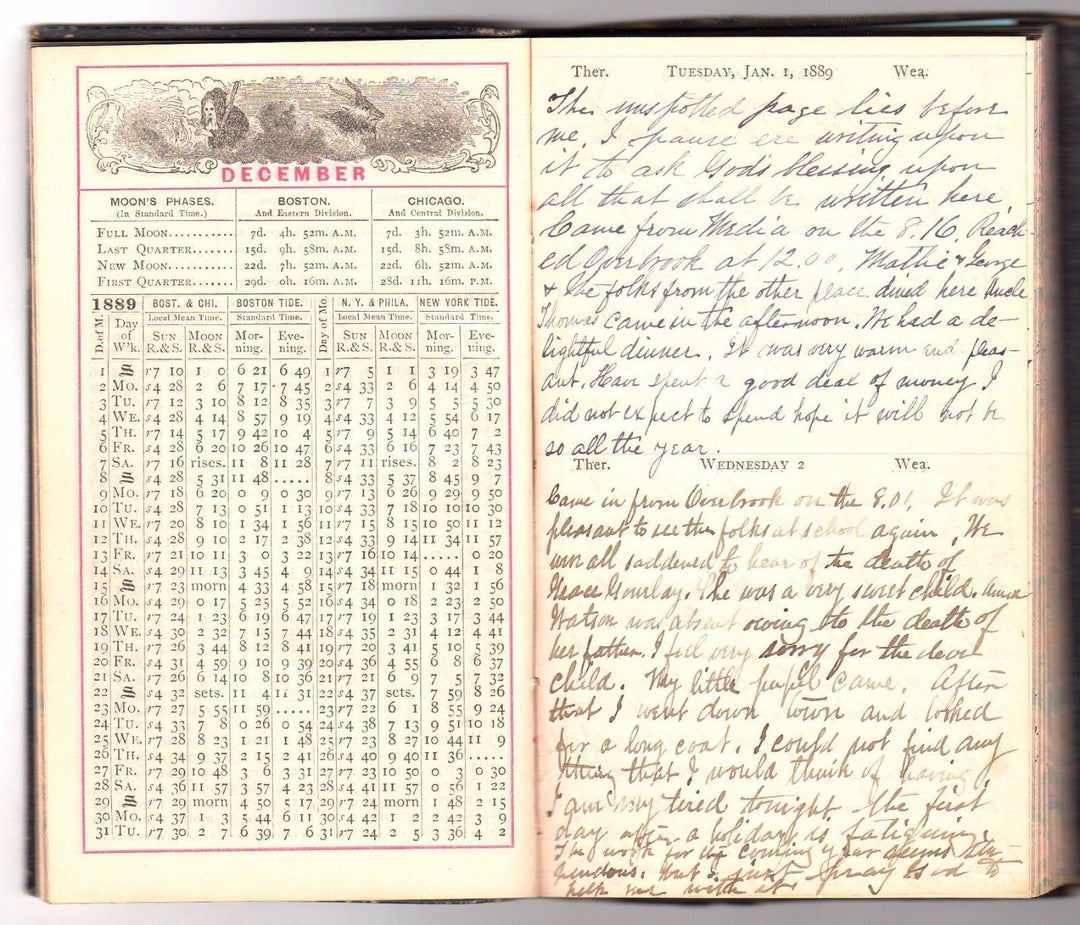 DECEMBER
MOON'S PHASES. BOSTON. CHICAGO.
(In Standard Time.) And Eastern Division. And Central Division.
FULL MOON........... 7d. 4h. 52m. A.M. 7d. 3h. 52m. A.M.
LAST QUARTER....... 15d. 9h. 58m. A.M. 15d. 8h. 58m. A.M.
NEW MOON........... 22d. 7h. 52m. A.M. 22d. 6h. 52m. A.M.
FIRST QUARTER...... 29d. 0h. 16m. A.M. 28d. 11h. 16m. P.M.
1889 BOST. & CHI. BOSTON TIDE. Day of Mo. N. Y. & PHILA. NEW YORK TIDE.
D. of M. Day of W'k. Local Mean Time. Standard Time. Local Mean Time. Standard Time.
SUN R.&S. MOON R.&S. Mor-ning. Eve-ning. SUN R.&S. MOON R.&S. Mor-ning. Eve-ning.
1 S r7 10 1 0 6 21 6 49 1 r7 5 1 1 3 19 3 47
2 MO. s4 28 2 6 7 17 7 45 2 s4 33 2 6 4 14 4 50
3 TU. r7 12 3 10 8 12 8 35 3 r7 7 3 9 5 5 5 30
4 WE. s4 28 4 14 8 57 9 19 4 s4 33 4 12 5 54 6 17
5 TH. r7 14 5 17 9 42 10 4 5 r7 9 5 14 6 40 7 2
6 FR. s4 28 6 20 10 26 10 47 6 s4 33 6 16 7 23 7 43
7 SA. r7 16 rises. 11 8 11 28 7 r7 11 rises. 8 2 8 23
8 S s4 28 5 31 11 48 ..... 8 s4 33 5 37 8 45 9 7
9 MO. r7 18 6 20 0 9 0 30 9 r7 13 6 26 9 29 9 50
10 TU. s4 28 7 13 0 51 1 13 10 s4 33 7 18 10 10 10 30
11 WE. r7 20 8 10 1 34 1 56 11 r7 15 8 15 10 50 11 12
12 TH. s4 28 9 10 2 17 2 38 12 s4 33 9 14 11 34 11 57
13 FR. r7 21 10 11 3 0 3 22 13 r7 16 10 14 ..... 0 20
14 SA. s4 29 11 13 3 45 4 9 14 s4 34 11 15 0 44 1 8
15 S r7 23 morn 4 33 4 58 15 r7 18 morn 1 32 1 56
16 MO. s4 29 0 17 5 25 5 52 16 s4 34 0 18 2 23 2 50
17 TU. r7 24 1 23 6 19 6 47 17 r7 19 1 23 3 17 3 44
18 WE. s4 30 2 32 7 15 7 44 18 s4 35 2 31 4 12 4 41
19 TH. r7 26 3 44 8 12 8 41 19 r7 20 3 41 5 10 5 39
20 FR. s4 31 4 59 9 10 9 39 20 s4 36 4 55 6 8 6 37
21 SA. r7 26 6 14 10 8 10 36 21 r7 21 6 9 7 5 7 32
22 S s4 32 sets. 11 4 11 31 22 s4 37 sets. 7 59 8 26
23 MO. r7 27 5 55 11 59 ..... 23 r7 22 6 1 8 55 9 24
24 TU. s4 33 7 8 0 26 0 54 24 s4 38 7 13 9 51 10 18
25 WE. r7 28 8 23 1 21 1 48 25 r7 23 8 27 10 44 11 9
26 TH. s4 34 9 37 2 15 2 41 26 s4 40 9 40 11 36 .....
27 FR. r7 29 10 48 3 6 3 31 27 r7 23 10 50 0 3 0 30
28 SA. s4 36 11 57 3 57 4 23 28 s4 41 11 57 0 56 1 22
29 S r7 29 morn 4 50 5 17 29 r7 24 morn 1 48 2 15
30 MO. s4 37 1 3 5 44 6 11 30 s4 42 1 2 2 42 3 9
31 TU. r7 30 2 7 6 39 7 6 31 r7 24 2 5 3 36 4 2
Ther. TUESDAY, JAN. 1, 1889 Wea.
The unspotted page lies before
me. I pause ere writing upon
it to ask God's blessing upon
all that shall be written here.
Came from Media on the 8.16. Reach-
ed Overbrook at 12.00. Mattie & George
& the folks from the other place dined here Uncle
Thomas came in the afternoon. We had a de-
lightful dinner. It was very warm and pleas-
ant. Have spent a good deal of money I
did not expect to spend hope it will not be
so all the year.
Ther. WEDNESDAY 2 Wea.
Came in from Overbrook on the 8.01. It was
pleasant to see the folks at school again. We
were all saddened to hear of the death of
Grace Gourlay. She was a very sweet child. Anna
Watson was absent owing to the death of
her father. I feel very sorry for the dear
child. My little pupil came. After
that I went down town and looked
for a long coat. I could not find any
thing that I would think of having.
I am very tired tonight. The first
day after a holiday is fatiguing.
The work for the coming year seems stu-
pendous. but I must pray God to
help me with it.